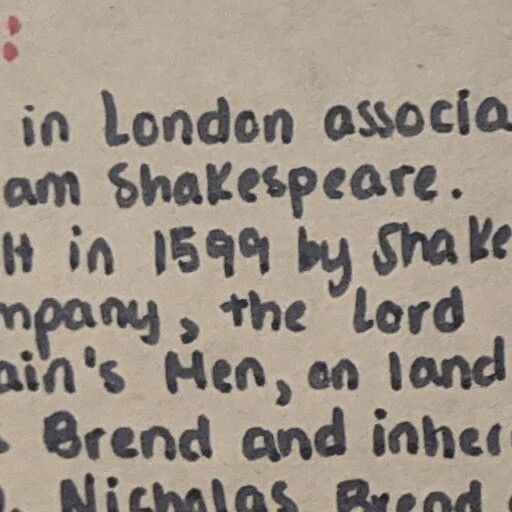 :
in London associa
am Shakespeare.
lt in 1599 by Shake
mpany, the Lord
ain's Men, on land
Brend and inher
Nicholas Brend